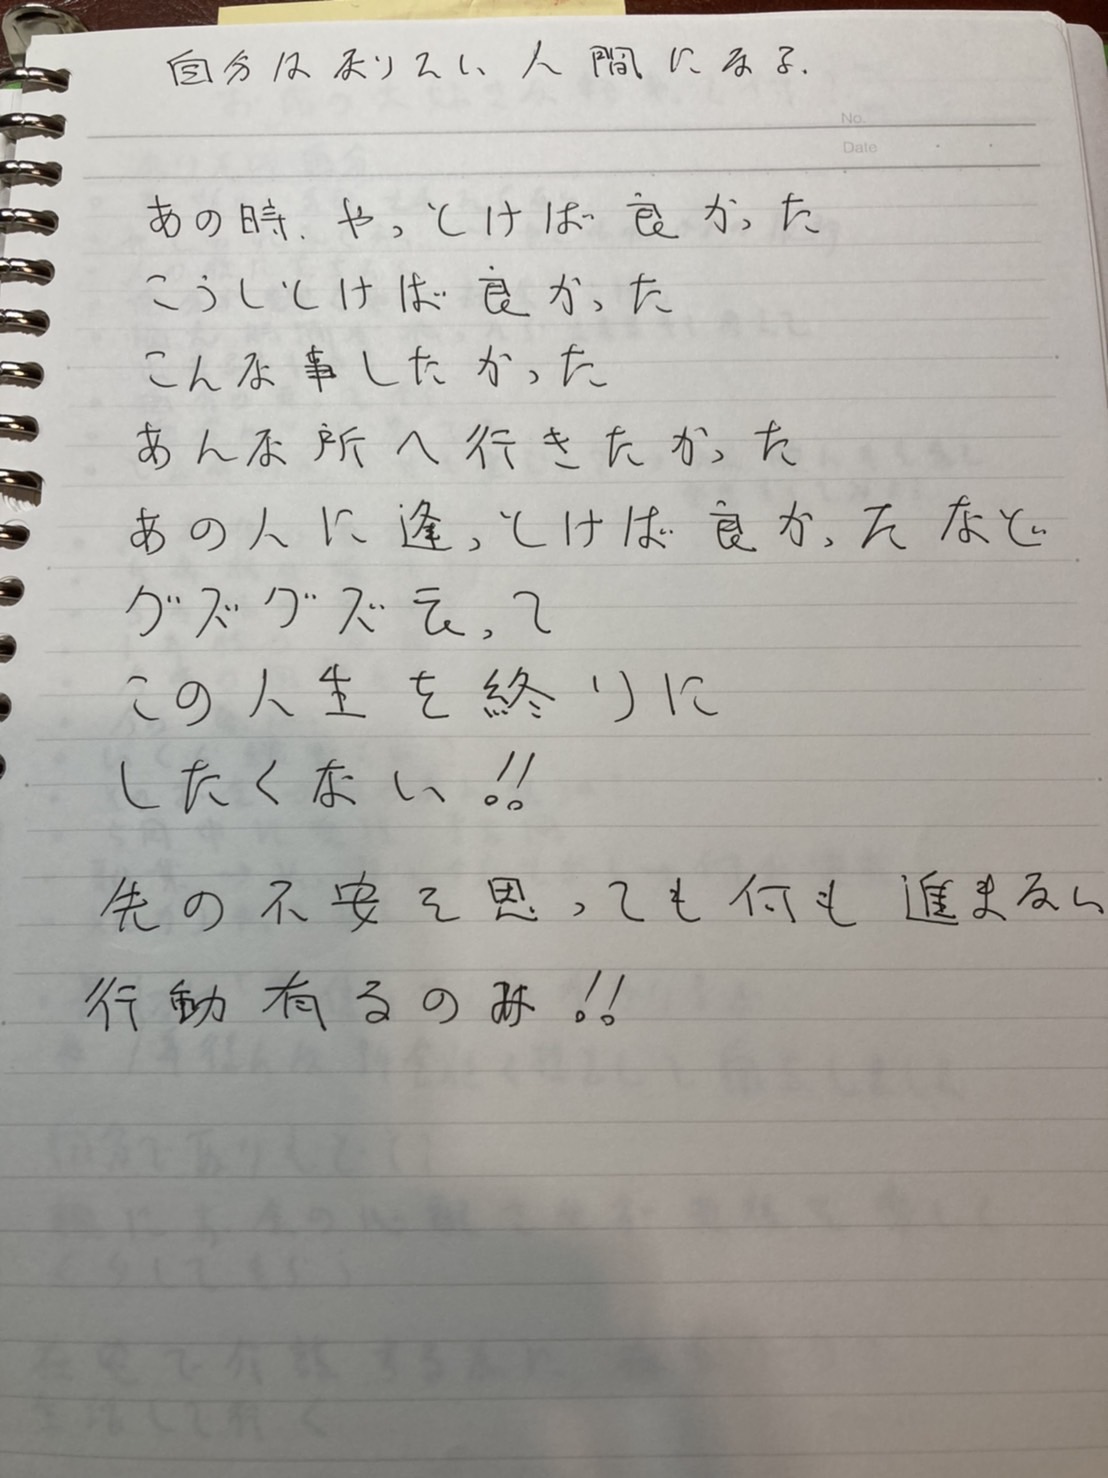 自分はなりたい人間になる.
No.
Date
あの時、やっとけば良かった
こうしとけば良かった
こんな事したかった
あんな所へ行きたかった
あの人に逢っとけば良かったなど
グズグズ云って
この人生を終りに
したくない!!
先の不安を思っても何も進まない
行動有るのみ!!